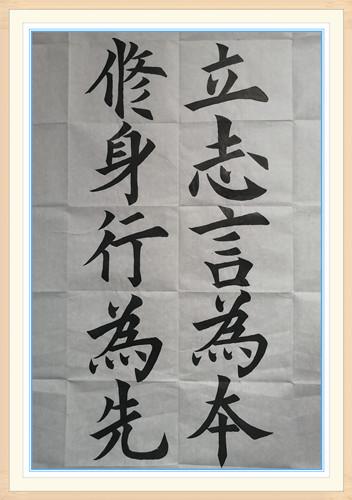 立志言為本
修身行為先